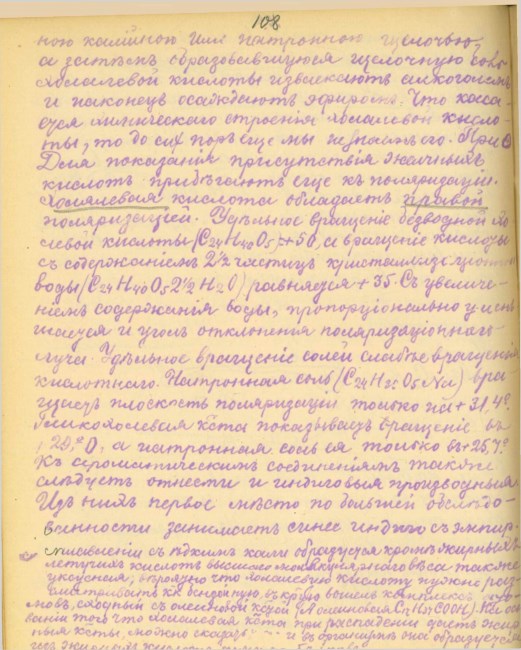 108
ною калійною или натронною щелочью,
а затѣмъ образовавшуюся щелочную соль
холалевой кислоты извлекаютъ алкоголемъ
и наконецъ осаждаютъ эфиромъ. Что каса-
ется химическаго строенія холалевой кисло-
ты, то до сихъ поръ еще мы не знаемъ его. При
Для показанія присутствія желчныхъ
кислотъ прибѣгаютъ еще къ поляризаціи.
Холалевая кислота обладаетъ правой
поляризаціей. Удѣльное вращеніе безводной хо
левой кислоты (C24H40O5)=+50, а вращеніе кислоты
съ содержаніемъ 2½ частицъ кристаллизаціонной
воды (C24H40O5 2½ H2O) равняется +35. Съ увеличе-
ніемъ содержанія воды, пропорціонально умень
шается и уголъ отклоненія поляризаціоннаго
луча. Удѣльное вращеніе солей слабѣе вращенія
кислотнаго. Натронная соль (C24H39O5Na) вра
щаетъ плоскость поляризаціи только на +31,4°.
Гликохолевая к-та показываетъ вращеніе въ
+29,°0, а натронная соль ея только въ +25,7°.
Къ ароматическимъ соединеніямъ также
слѣдуетъ отнести и индиговыя производныя
Изъ нихъ первое мѣсто по большей обслѣдо-
ванности занимаетъ синее индиго съ эмпир.
сплавленіи съ ѣдкимъ кали образуется кромѣ жирныхъ
летучихъ кислотъ высшаго молекулярнаго вѣса также
уксусная; вѣроятно что холалевую кислоту нужно раз-
сматривать какъ въ которую вошелъ комплексъ
мовъ, сходный съ олеиновой к-той (C17H33COOH). На осно
ваніи того что холалевая к-та при распаденіи даетъ жир
ныя к-ты, можно сказать и въ организмѣ она образуется
изъ жирныхъ кислотъ